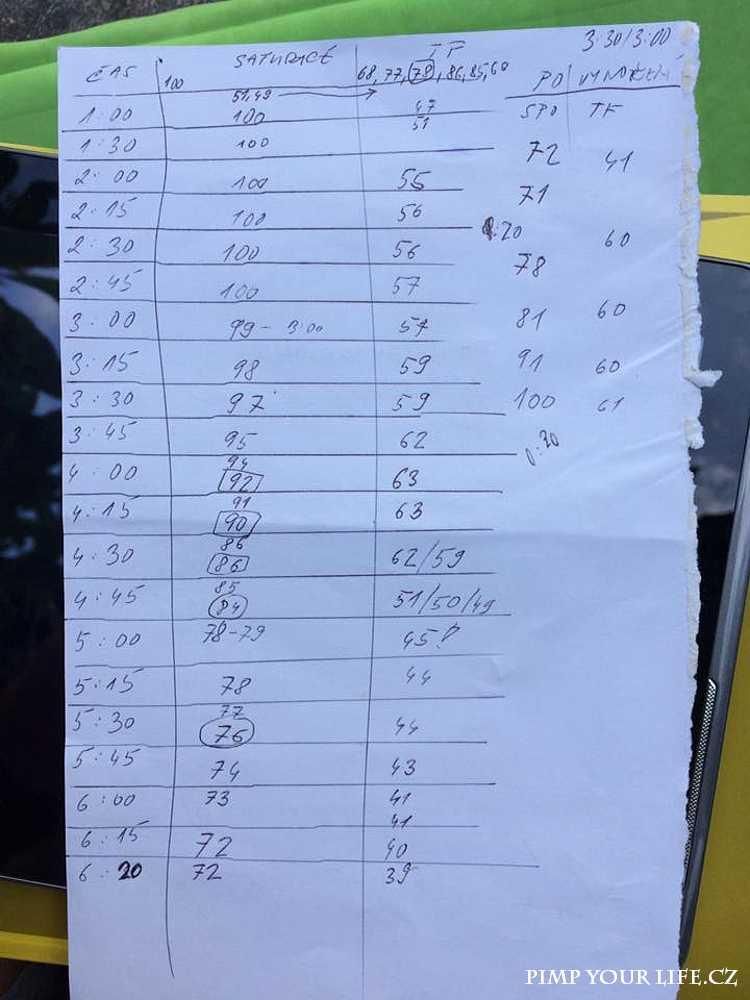 3:30/3:00
ČAS SATURACE TF PO VYNOŘENÍ
100 68, 77, 78, 86, 85, 60
51,49 →
SPO TF
1:00 100 47
51
1:30 100
72 41
2:00 100 55
71
2:15 100 56
:20
60
2:30 100 56
78
2:45 100 57
3:00 99 - 3:00 57
81 60
3:15 98 59
91 60
3:30 97 59
100 61
3:45 95 62
0:20
94
4:00 92 63
91
4:15 90 63
86
4:30 86 62/59
85
4:45 84 51/50/49
5:00 78-79 45!
5:15 78 44
77
5:30 76 44
5:45 74 43
6:00 73 41
41
6:15 72 40
6:20 72 39
PIMP YOUR LIFE.CZ